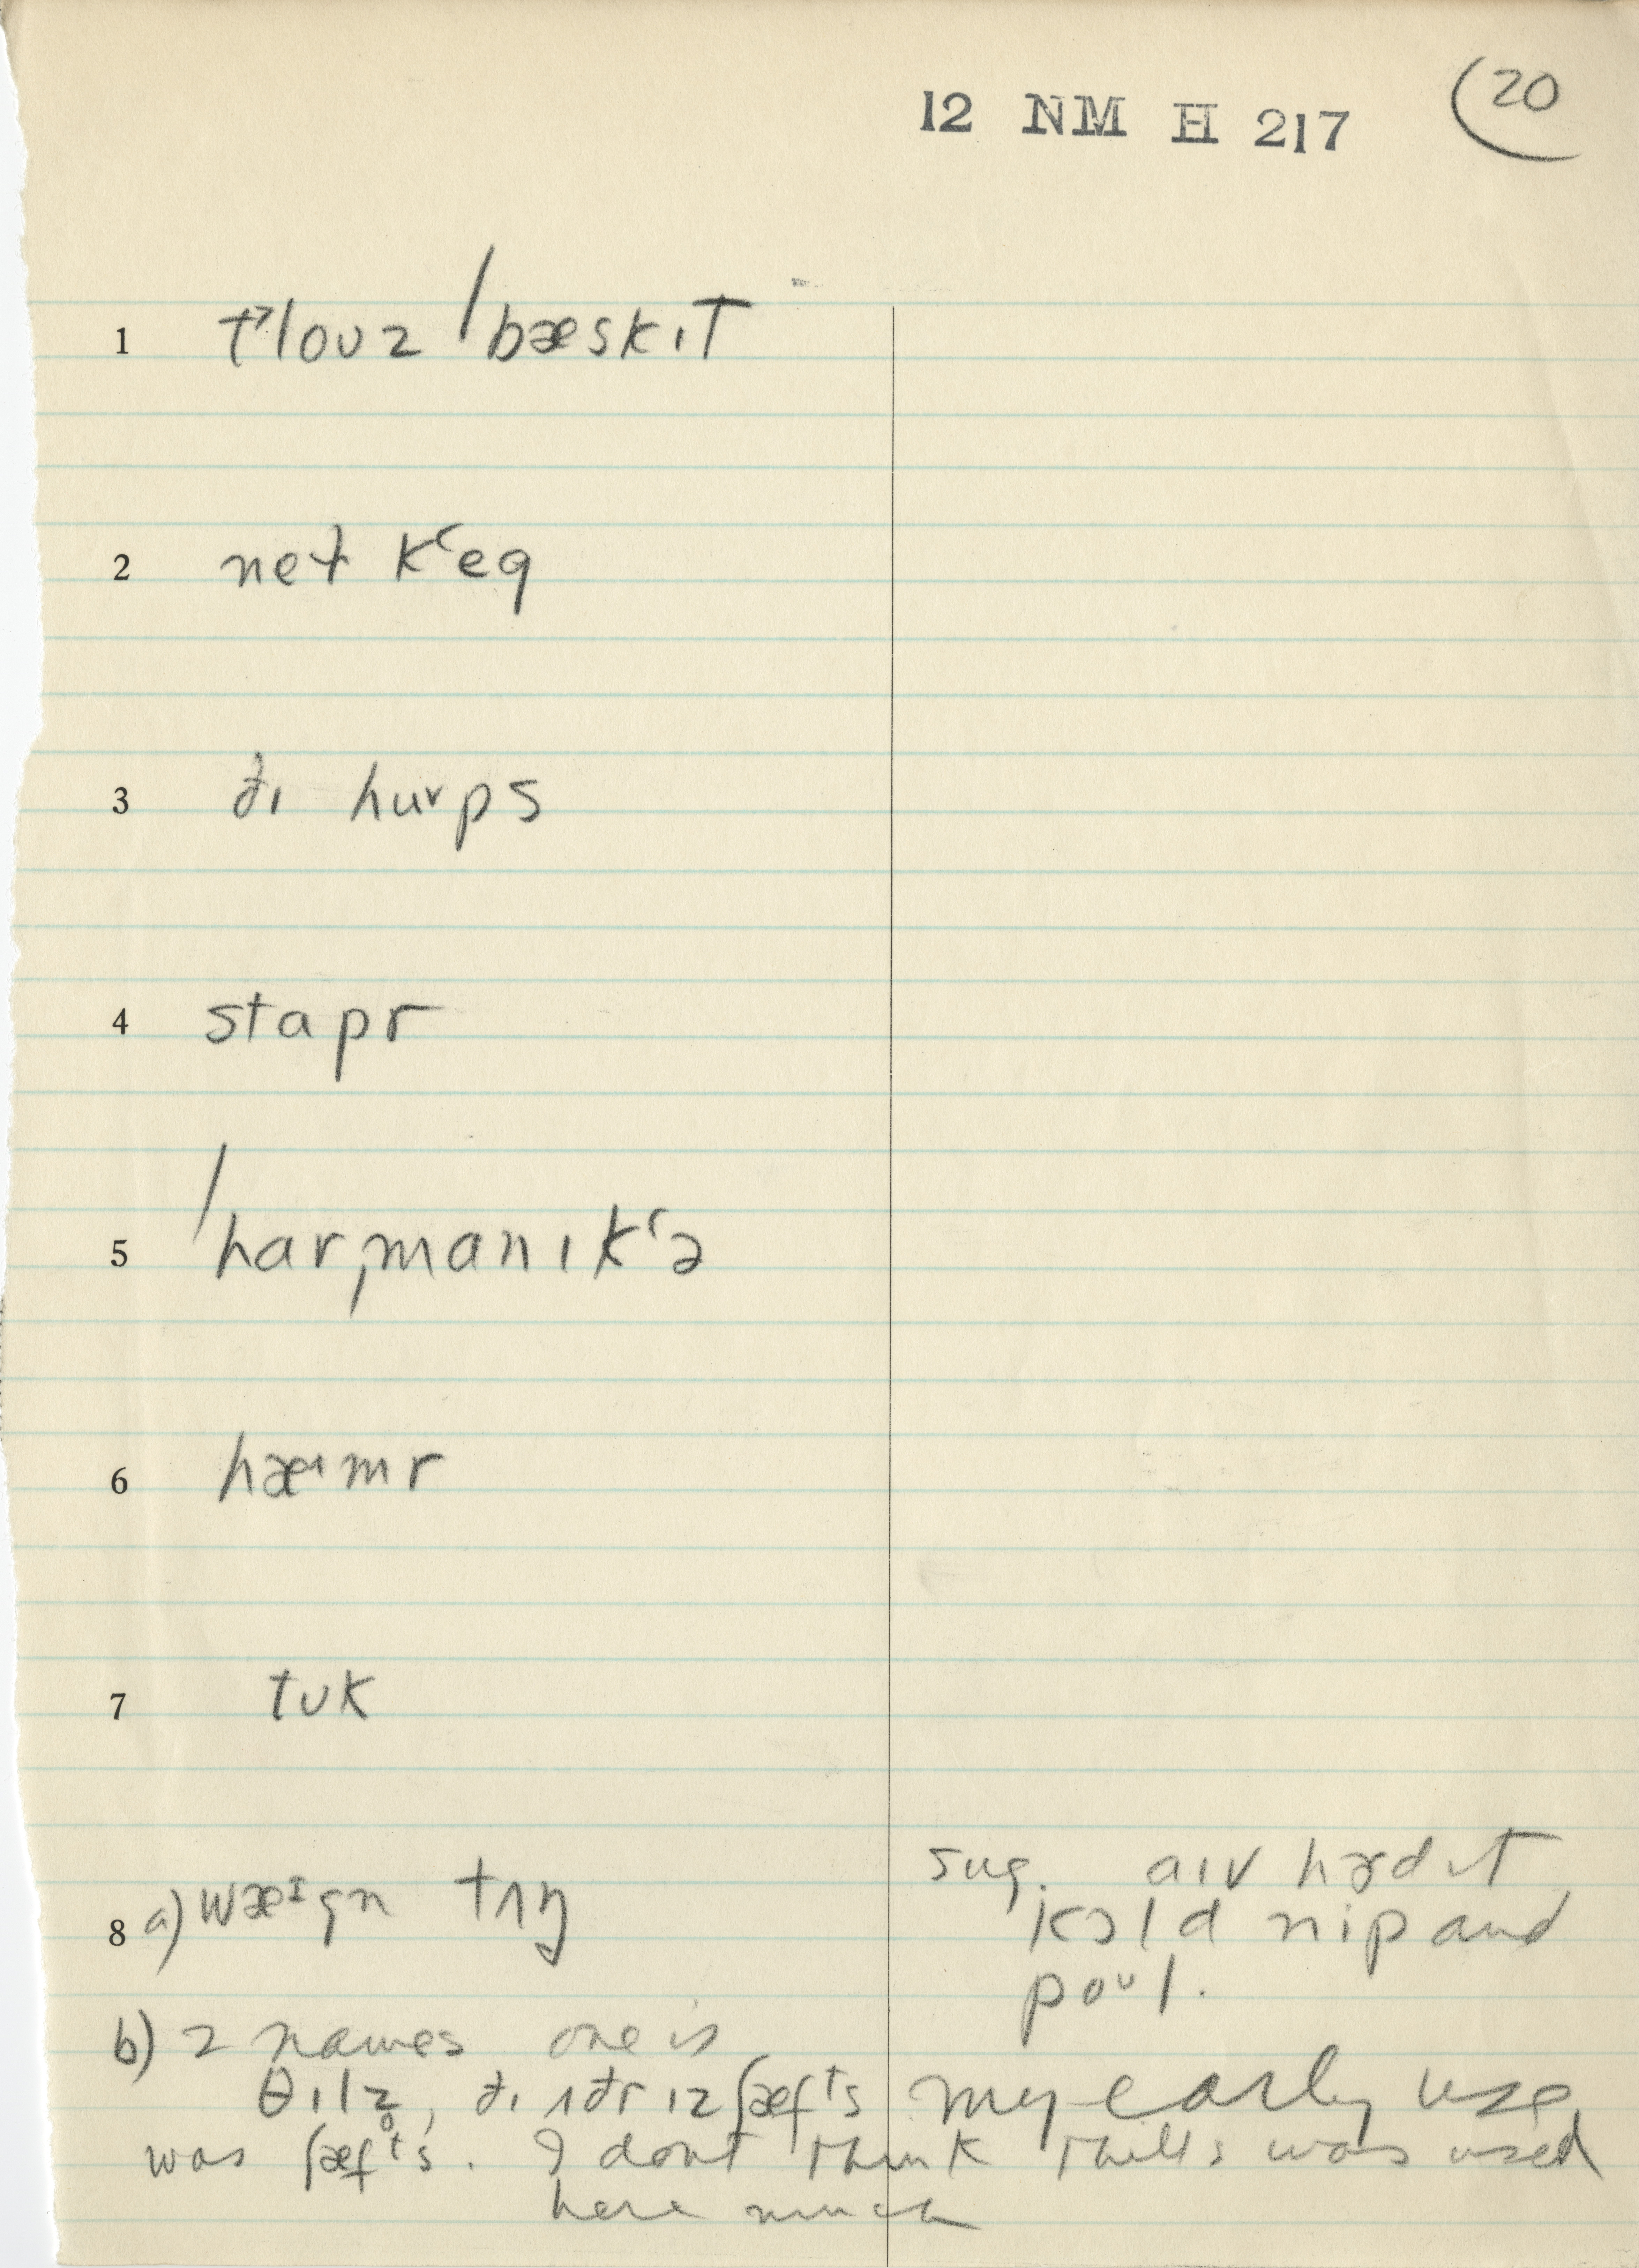 12 NM H 217 (20
1 t˃louz ˈbæskɪT
2 neɫ kʻeg
3 ðɪ hurps
4 stapr
5 ˈharˌmanɪkʻə
6 hæˑmr
7 tʊk
8 a) wæᶦgn tʌŋ
sug. aɪv hɜdɪT
kɔld nip and
poᶸl.
b) 2 names one is
θɪlz̥, ðɪ ʌðr ɪz ʃæfᵗs my early use
was ʃæfᵗs. I dont think thills was used
here much